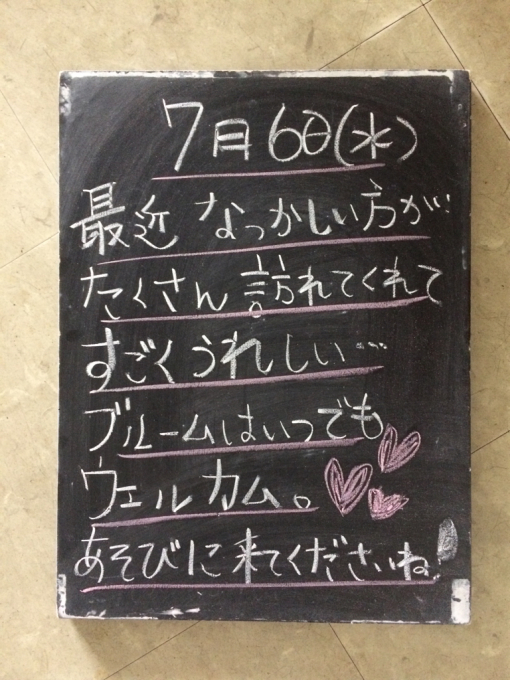 7月6日(水)
最近 なつかしい方が
たくさん 訪れてくれて
すごくうれしい…
ブルームはいつでも
ウェルカム。
あそびに来てくださいね!